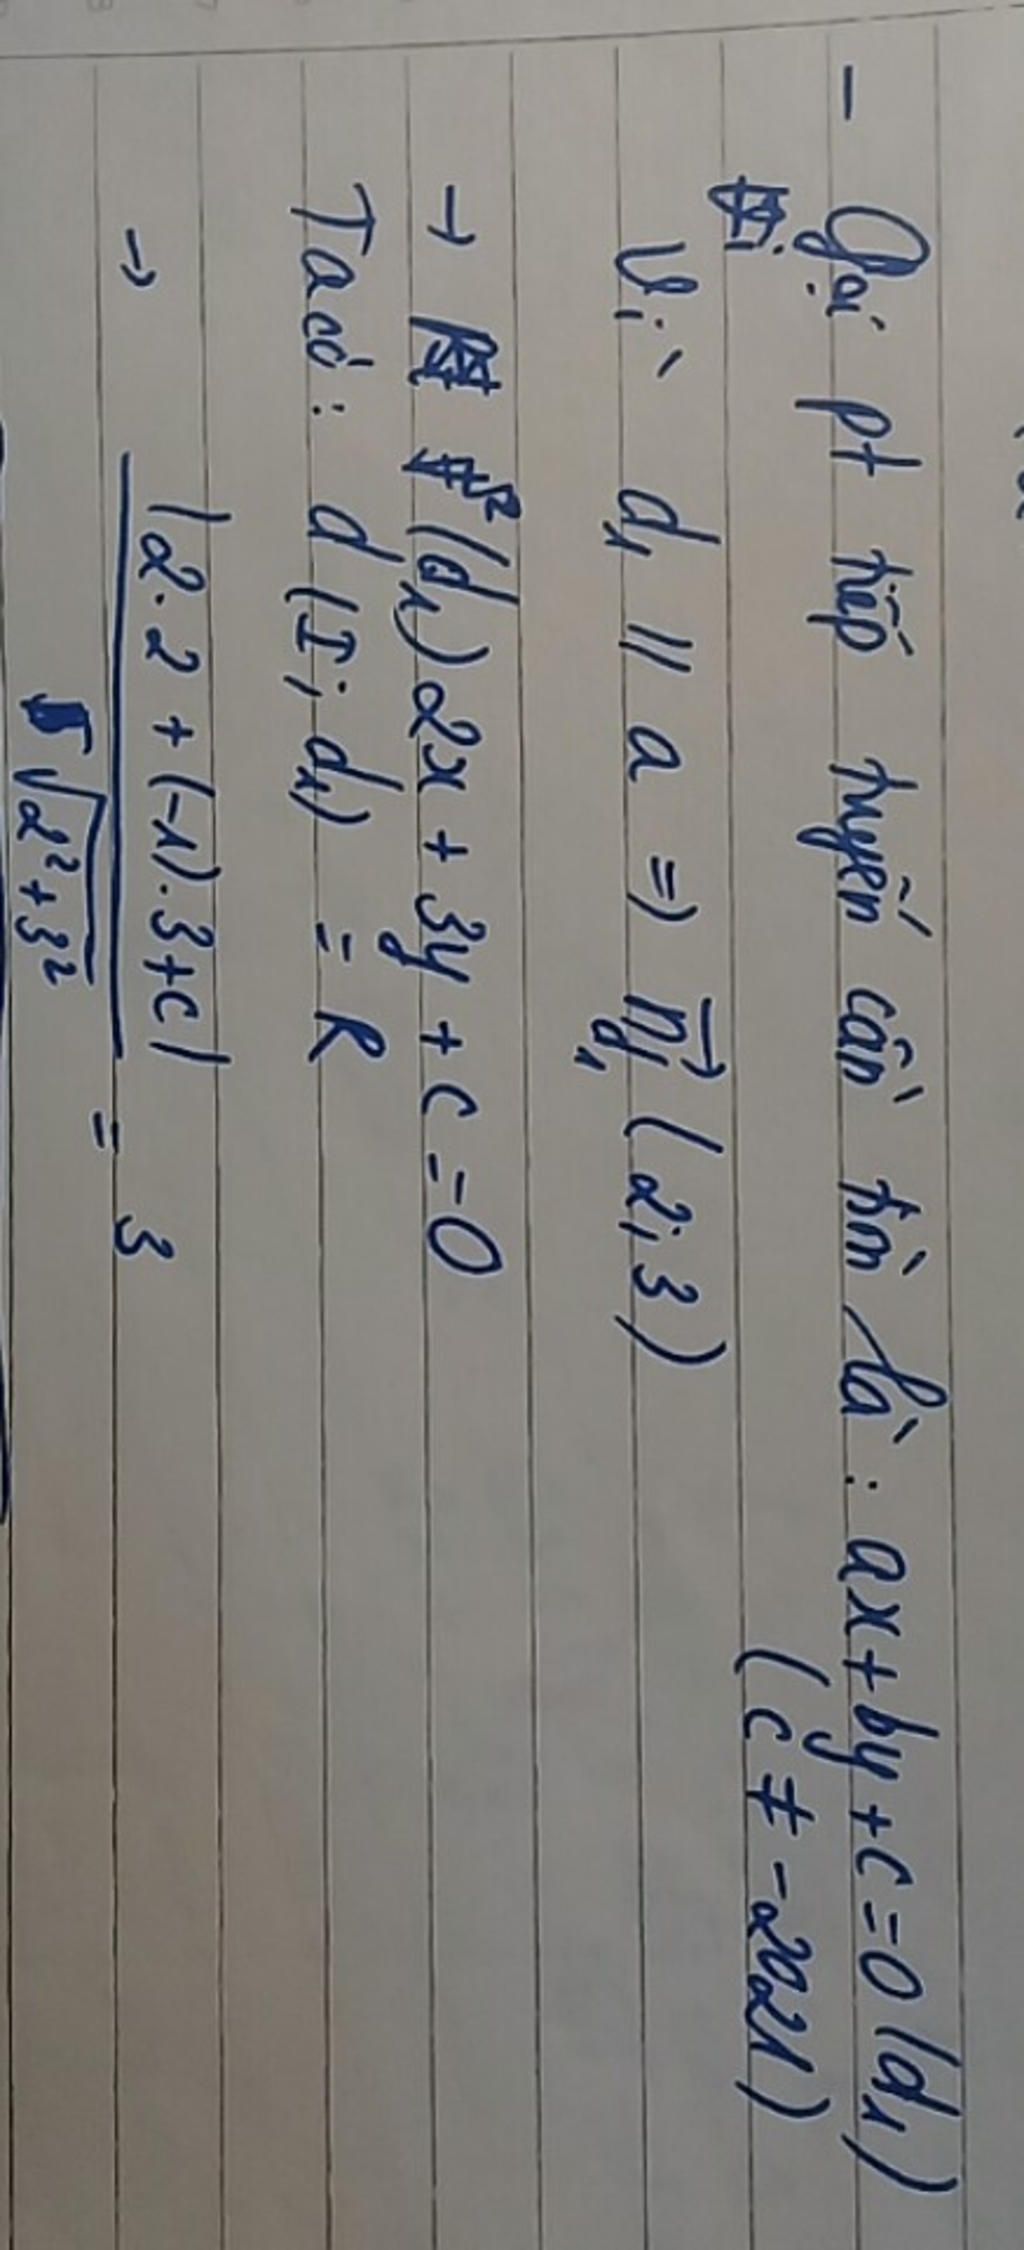 - Gọi pt tiếp tuyến cần tìm là : ax + by + c = 0 (d₁)
(c ≠ -2021)
Vì d₁ // a => n⃗d₁ (2; 3)
→ (d₁) 2x + 3y + c = 0
Ta có : d (I; d₁) = R
→ |2.2 + (-1).3 + c| / √2² + 3² = 3